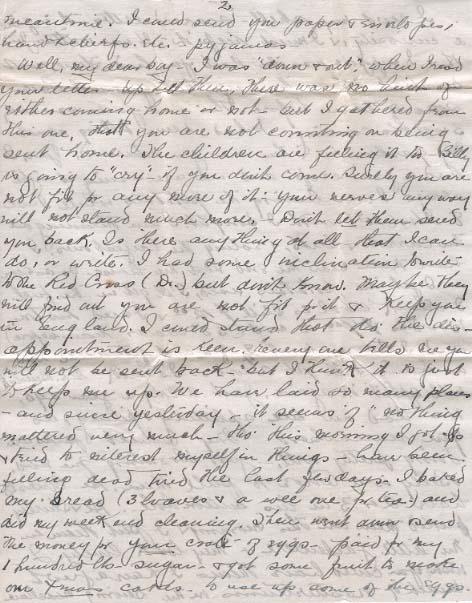 2
meantime. I could send you paper & envelopes,
handkerchiefs. etc. pyjamas
Well, my dear boy - I was "down & out", when I read
your letter - up till then, there was no hint of
either coming home or not - but I gathered from
this one, that you are not counting on being
sent home. The children are feeling it too - Billy
is going to "cry" - if you don't come. Surely you are
not fit for any more of it - your nerves any way
will not stand much more. Don't let them send
you back. Is there anything at all that I can
do, or write. I had some inclination to write
to the Red Cross (Dr.) but don't know. Maybe they
will find out you are not fit for it & keep you
in England. I could stand that tho the dis-
appointment is keen. Every one tells me you
will not be sent back - but I think it is just
to keep me up. We have laid so many plans
- and since yesterday - it seems as if nothing
mattered very much - Tho' this morning I got up
& tried to interest myself in things - have been
feeling dead tired the last few days. I baked
my bread (3 loaves & a wee one for tea) and
did my week end cleaning. Then went down & send
the money for your case of eggs - paid for my
1 hundred lbs sugar - & got some fruit to make
our Xmas cakes - to use up some of the eggs